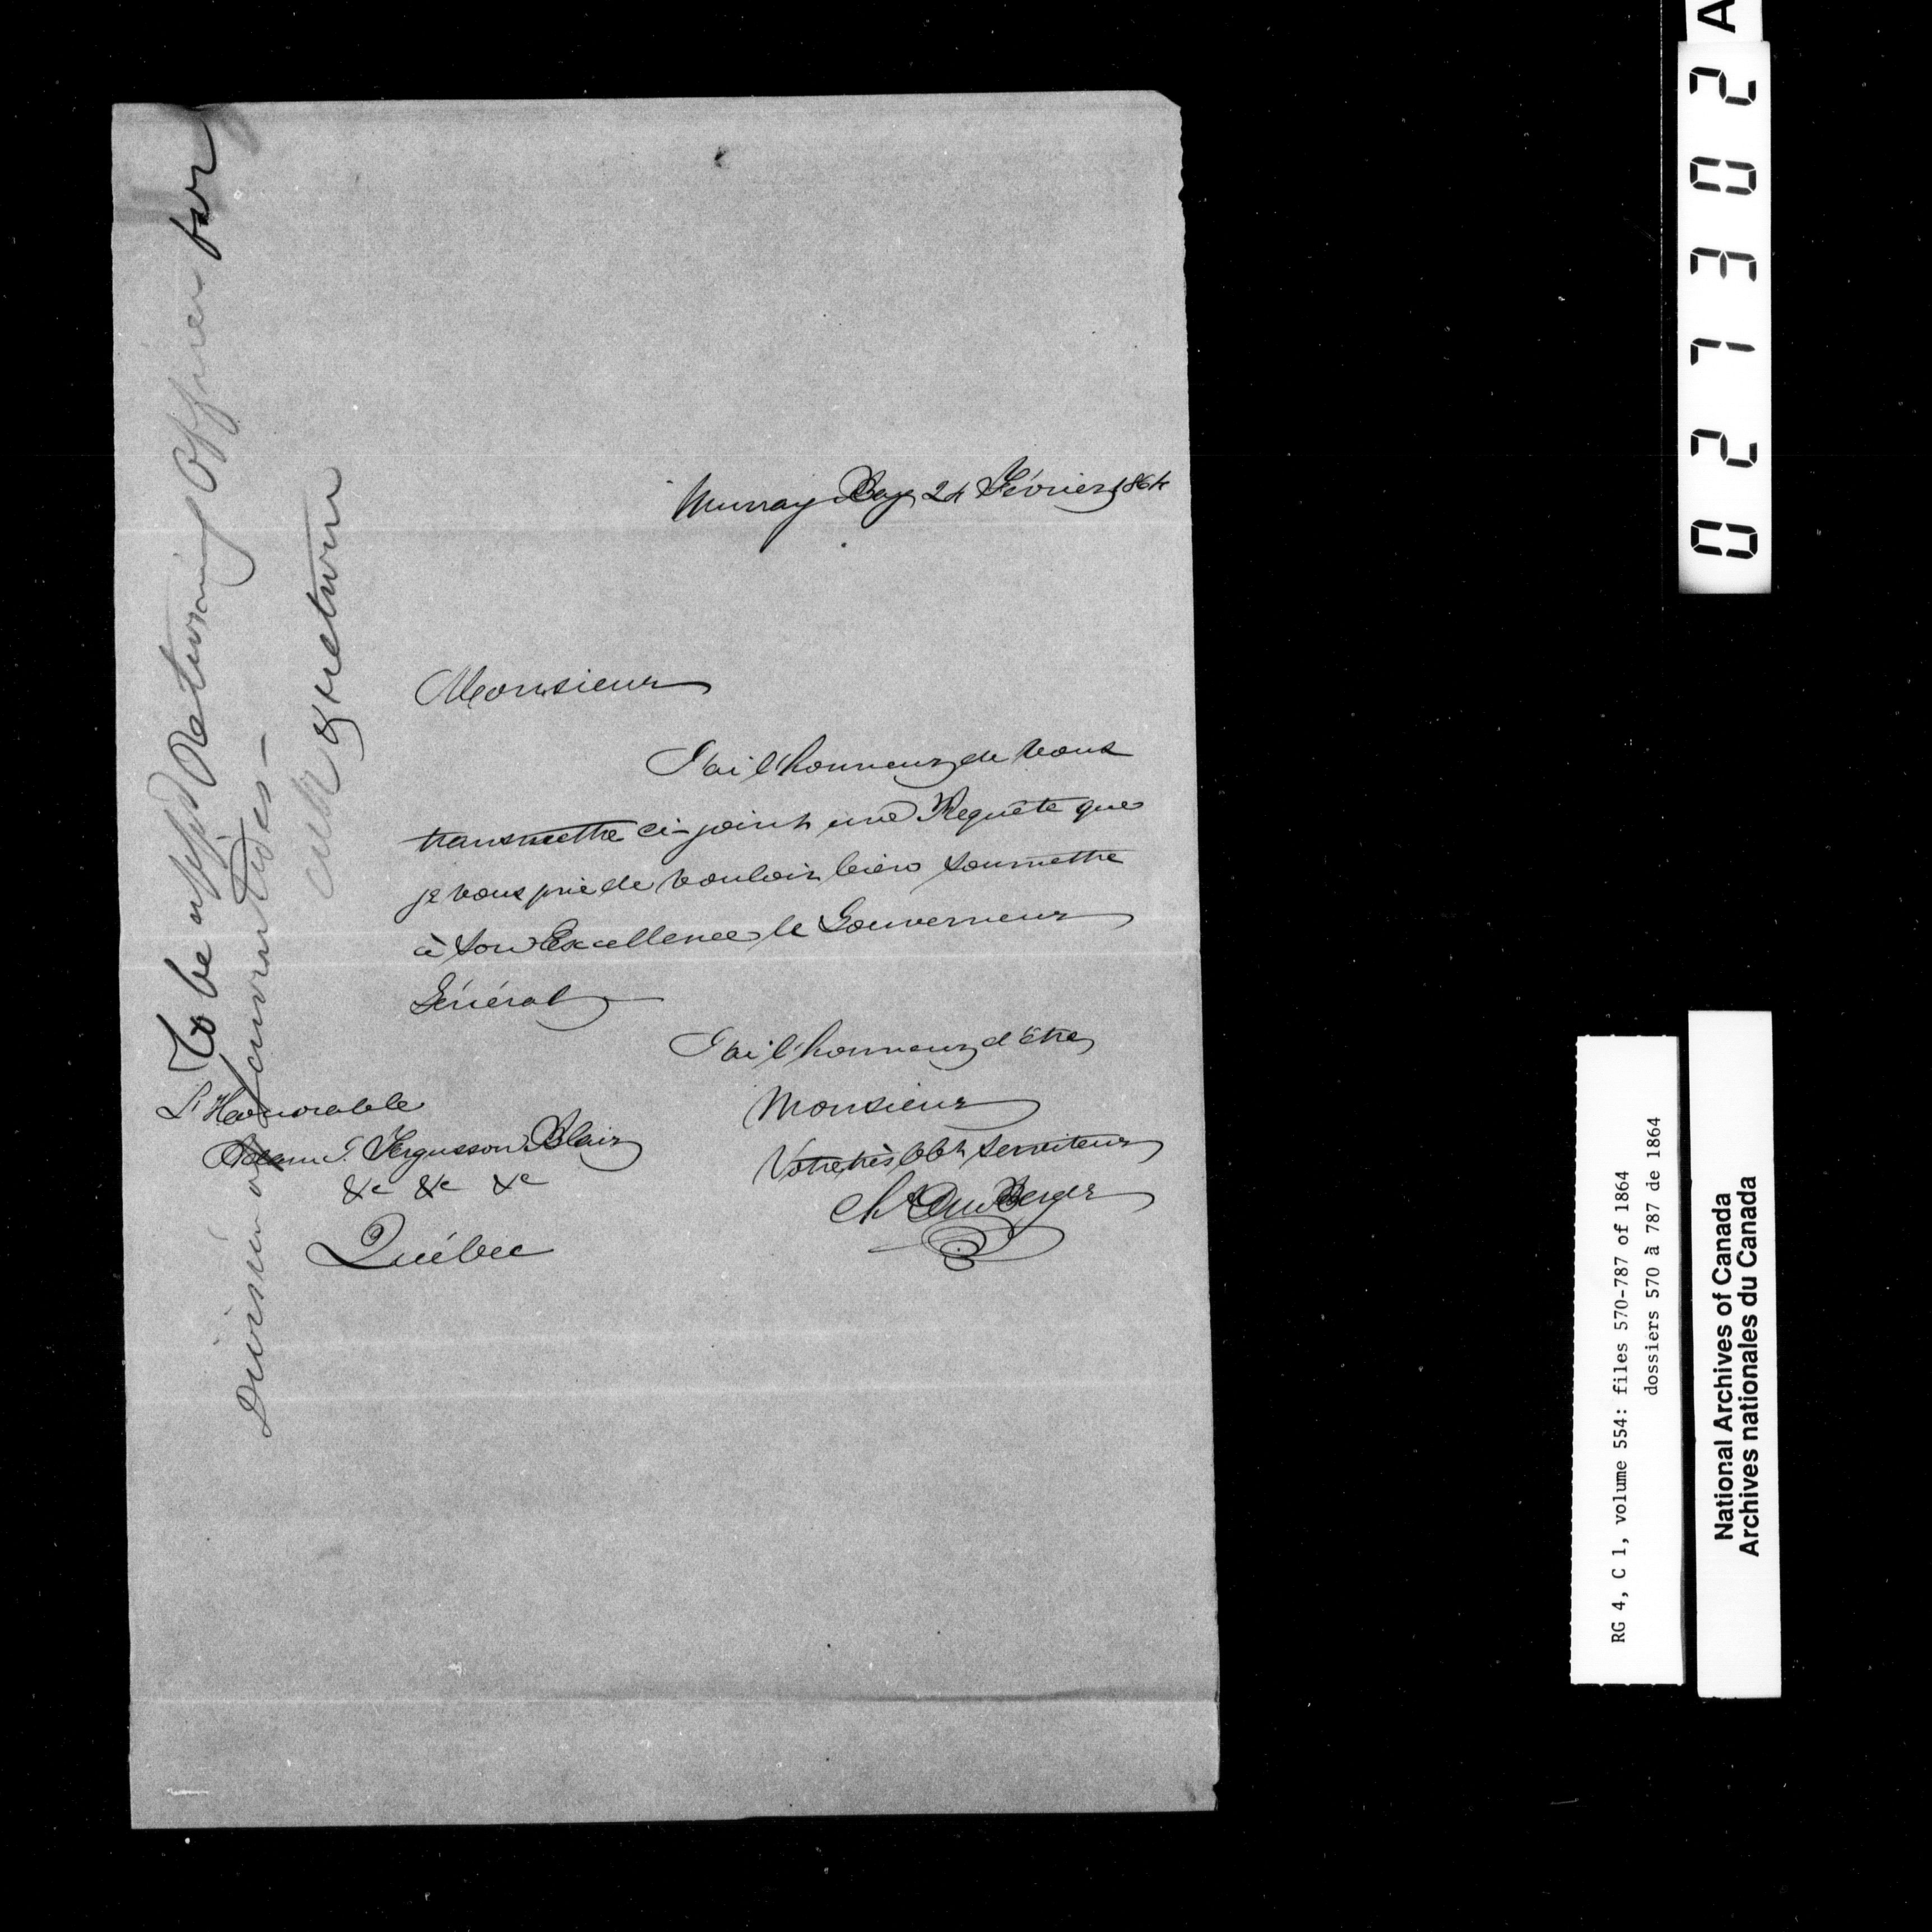 Murray Bay 24 Février 1864
Monsieur
J'ai l'honneur de vous
transmettre ci-joint une Requête que
je vous prie de vouloir bien soumettre
à Son Excellence le Gouverneur
Général
J'ai l'honneur d'être
Monsieur
Votre très obt serviteur
Ch DuBerger
L'Honorable
Adam J. Fergusson Blair
&c &c &c
Québec
To be app'd Returning Officer for
Division of Laurentides -
ask & return
027302
A
RG 4, C 1, volume 554: files 570-787 of 1864
dossiers 570 à 787 de 1864
National Archives of Canada
Archives nationales du Canada